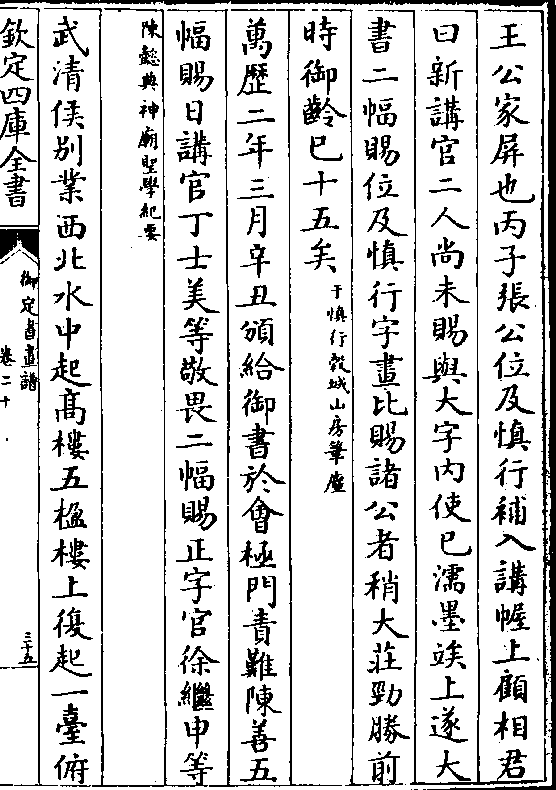 王公家屏也丙子張公位及慎行補入講幄上顧相君
曰新講官二人尚未賜與大字内使已濡墨竢上遂大
書二幅賜位及慎行字畫比賜諸公者稍大莊勁勝前
時御齡已十五矣于慎行穀城山房筆麈
萬歴二年三月辛丑頒給御書於會極門責難陳善五
幅賜日講官丁士美等敬畏二幅賜正字官徐繼申等
陳懿典神廟聖學紀要
武清侯别業西北水中起髙樓五楹樓上復起一臺俯
欽定四庫全書
御定書畫譜
卷二十
三十五